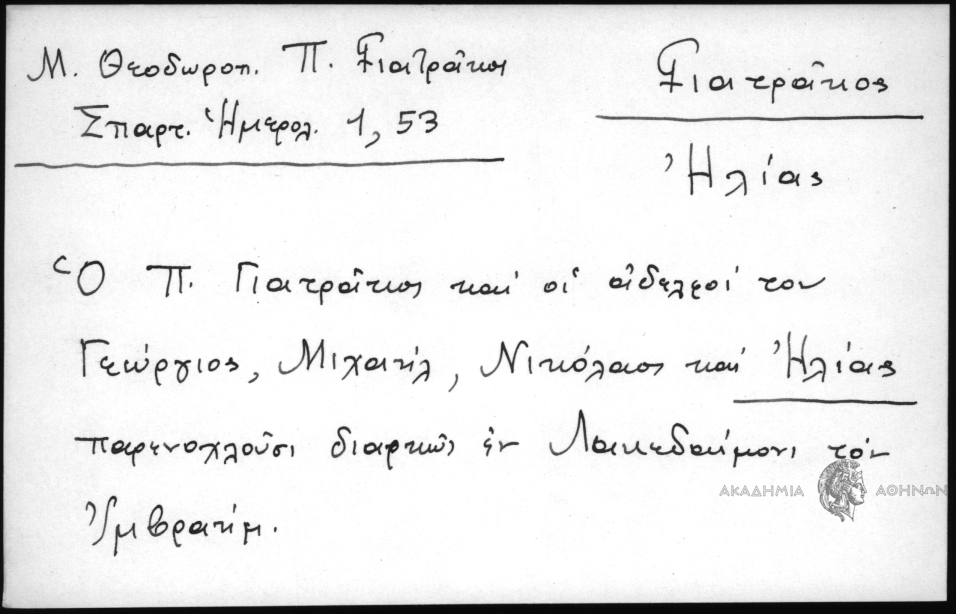 Μ. Θεοδωροπ. Π. Γιατρᾶκος
Σπαρτ. Ἡμερολ. 1, 53
Γιατρᾶκος
Ἠλίας
Ὁ Π. Γιατρᾶκος καὶ οἱ ἀδελφοί του
Γεώργιος, Μιχαήλ, Νικόλαος καὶ Ἠλίας
παρενοχλοῦσι διαρκῶς ἐν Λακεδαίμονι τὸν
Ἰμβραήμ.
ΑΚΑΔΗΜΙΑ ΑΘΗΝΩΝ